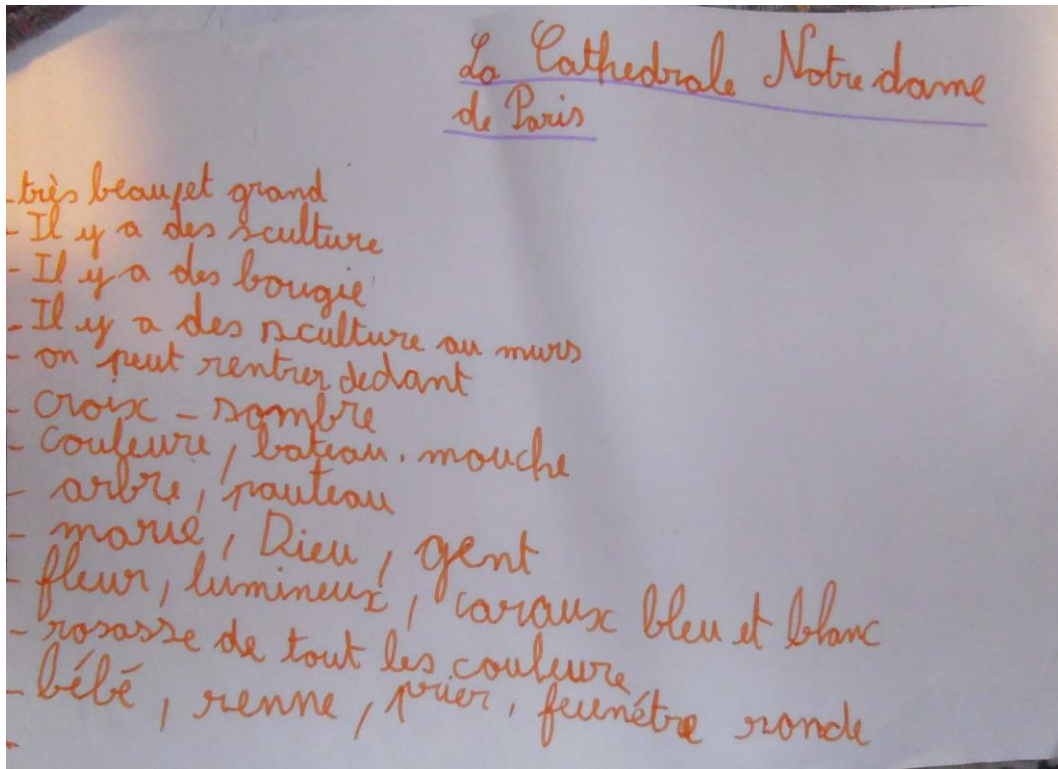 La Cathedrale Notre dame
de Paris
- très beau, et grand
- Il y a des sculture
- Il y a des bougie
- Il y a des sculture au murs
- on peut rentrer dedant
- croix - sombre
- couleure, bateau. mouche
- arbre, pauteau
- marie, Dieu, gent
- fleur, lumineux, caraux bleu et blanc
- rosasse de tout les couleure
- bébé, renne, prier, feunétre ronde
-